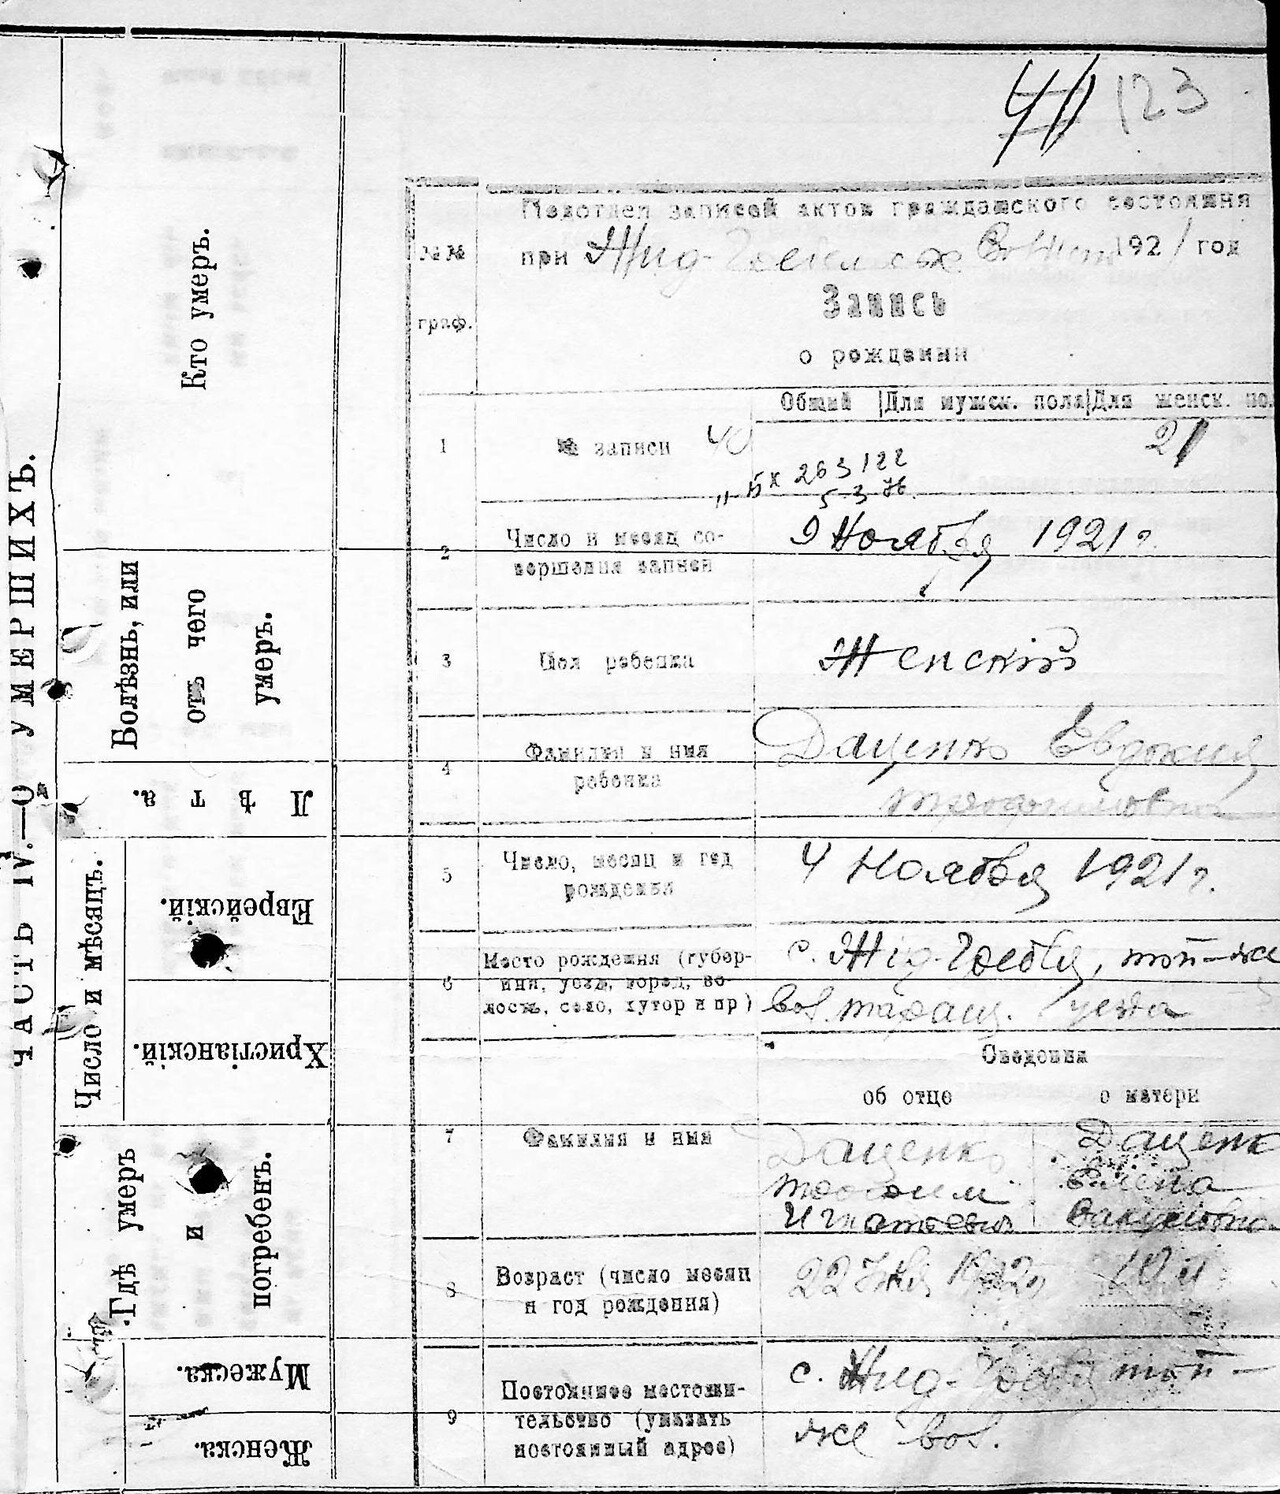 41 123
ЧАСТЬ IV.—О УМЕРШИХЪ.
Кто умеръ.
Болѣзнь, или
отъ чего
умеръ.
Лѣта.
Число и мѣсяцъ.
Еврейскій.
Христіанскій.
Гдѣ умеръ
и
погребенъ.
Мужеска.
Женска.
Подотдел записей актов гражданского состояния
№№ граф.
при Жид- 1921 год
Запись
о рождении
Общий Для мужск. пола Для женск. по
1 № записи 40 21
263122
5 3 76
2 Число и месяц со-
вершения записи
9 Ноября 1921 г.
3 Пол ребенка Женский
4 Фамилия и имя
ребенка
Даценко Евдокия
Трофимовна
5 Число, месяц и год
рождения
4 Ноября 1921 г.
6 Место рождения (губер-
ния, уезд, город, во-
лость, село, хутор и пр)
с. Жид-Гребля, той-же
вол. Таращ. уезда
Сведения
об отце о матери
7 Фамилия и имя
Даценко
Трофим
Игнатьевич
Даценко
Елена
Вакуловна
8 Возраст (число месяц
и год рождения)
22
9 Постоянное местожи-
тельство (указать
постоянный адрес)
с. Жид-Гребля той-
же вол.